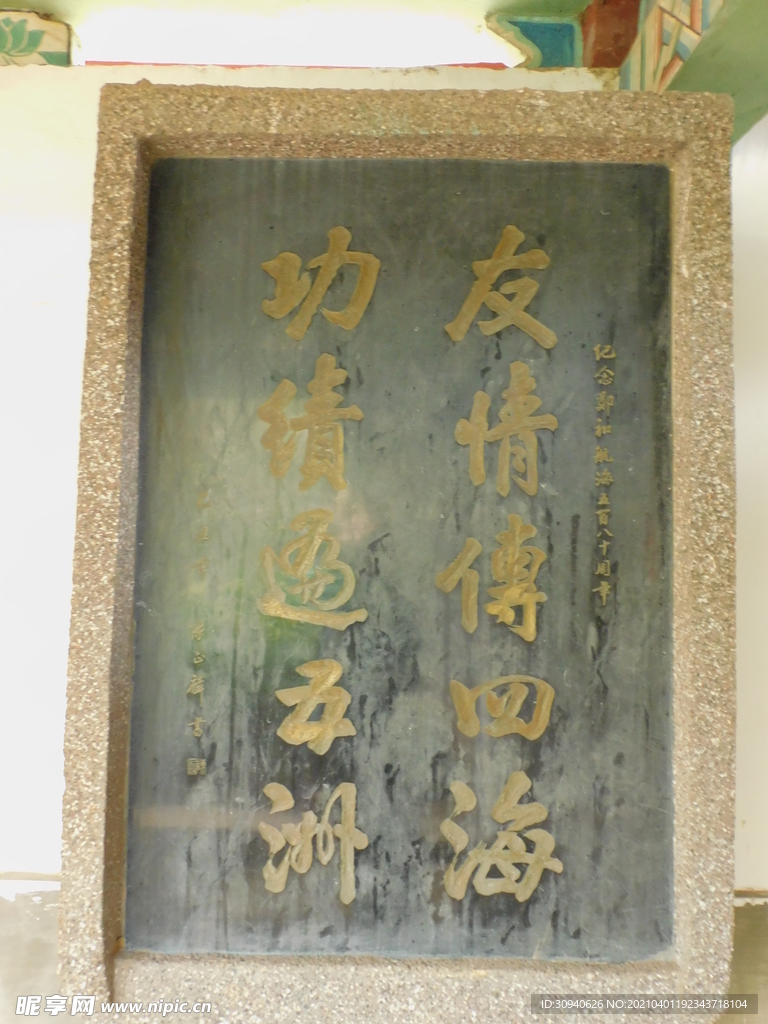 纪念郑和航海五百八十周年
友情傳四海
功績遍五洲
昵享网 www.nipic.cn
ID:30940626 NO:20210401192343718104